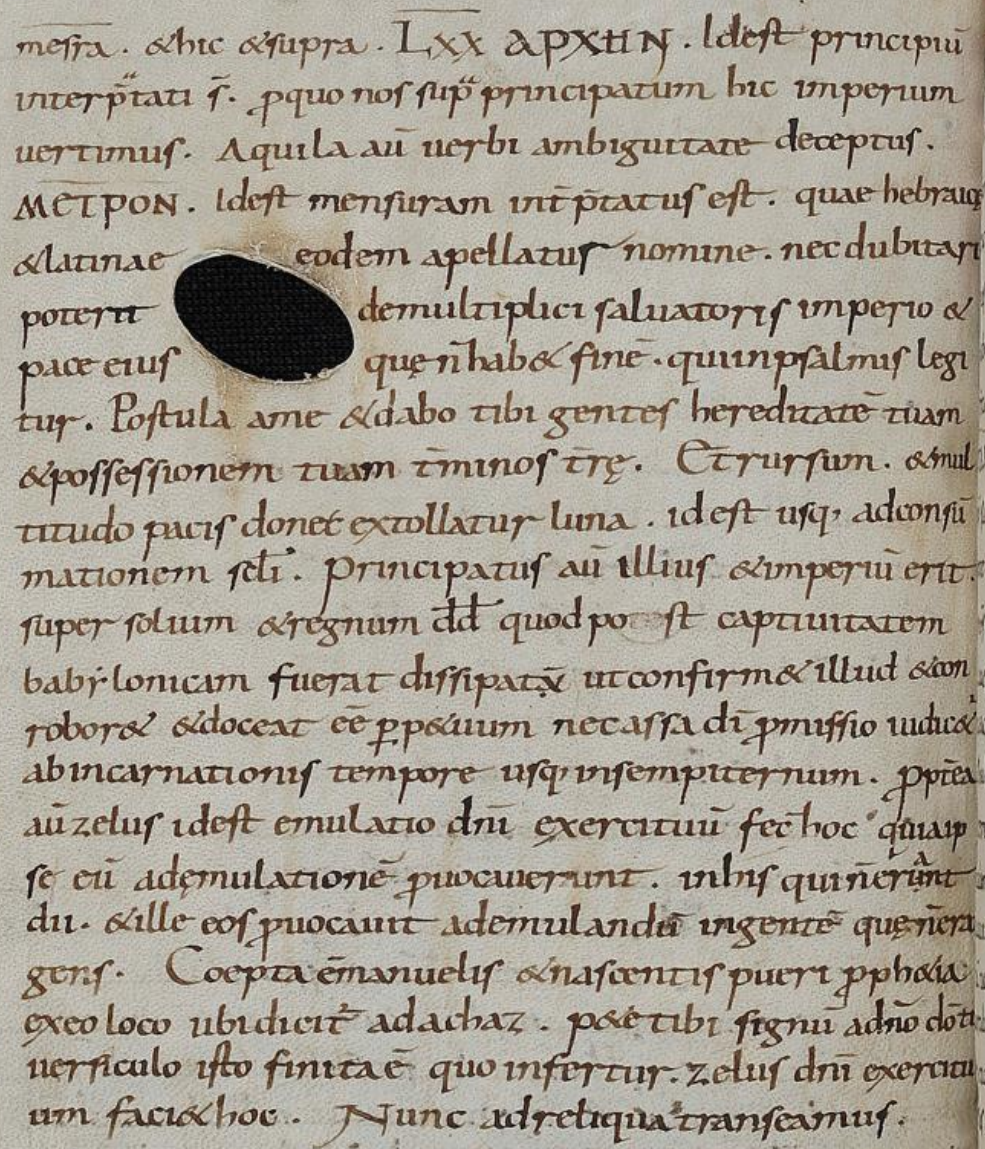 mesra. &hic &supra. LXX APXHN. Idest principiū
interp̄tati s̄. ꝓquo nos sup̄ principatum hic imperium
uertimus. Aquila aū uerbi ambiguitate deceptus.
METPON. Idest mensuram int̄p̄tatus est. quae hebraicę
&latinae eodem apellatur nomine. nec dubitari
poterit demultiplici saluatoris imperio &
pace eius quę n̄ hab& finē. quiinpsalmis legi
tur. Postula ame &dabo tibi gentes hereditatē tuam
&possessionem tuam t̄minos t̄rę. Et rursum. &mul
titudo pacis donec extollatur luna. idest usq; adconsū
mationem scłi. Principatus aū illius &imperiū erit.
super solium &regnum dd̄ quod post captiuitatem
babẏlonicam fuerat dissipatū ut confirm& illud &con
robor& &doceat eē ꝑp&uum nec assa dī ꝓmissio iudic&
abincarnationis tempore usq; insempiternum. ꝓpt̄ea
aū zelus idest emulatio dn̄i exercituū fec̄ hoc quiaip
se eū adęmulationē ꝓuocauerunt. inhis quin̄erant
dii. &ille eos ꝓuocauit ademulandū ingentē quęn̄era
gens. Coepta ēmanuelis &nascentis pueri ꝓph&ia
exeo loco ubidicit adachaz. p&e tibi signū adn̄o dō t
uersiculo isto finita ē quo infertur. zelus dn̄i exercitu
um faci& hoc. Nunc adreliqua transeamus.